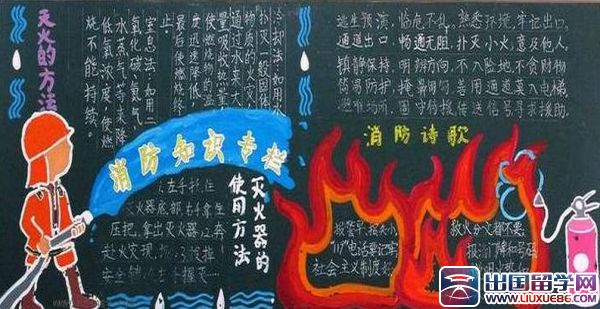 灭火的方法
冷却法:如用水
扑灭一般固体
物质的火灾,
通过水来大
量吸收热量,
使燃烧物的温
度迅速降低,
最后使燃烧终
止。
窒息法:如用二
氧化碳、氮气、
水蒸气等来降
低氧浓度,使燃
烧不能持续。
消防知识专栏
灭火器的
使用方法
左手托住
灭火器底部,右手拿住
压把,拿灭火器
赴火灾现
安全
逃生预演,临危不乱,熟悉环境,牢记出口,
通道出口,畅通无阻,扑灭小火,惠及他人,
镇静保持,明辨方向,不入险地,不贪财物
简易防护,掩鼻匍匐,善用通道,莫入电梯
避难场所,固守待援,传送信号,寻求援助.
消防诗歌
报警早,损失小,
"119"电话要记牢
社会主义制度好
救火分文都不要,
出国留学网
www.liuxue86.com